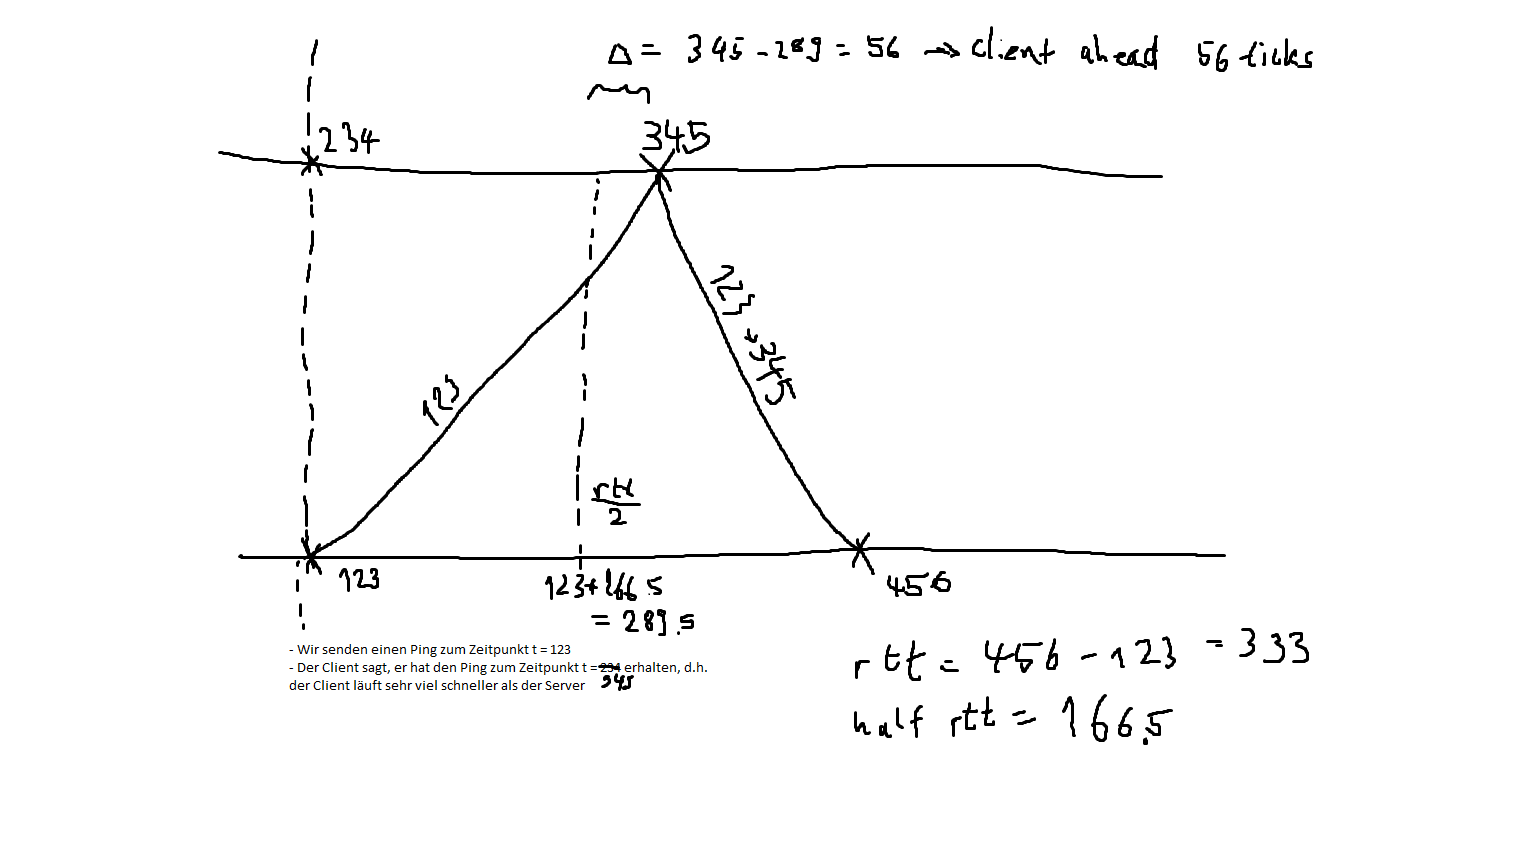 Δ = 345 - 289 = 56 → client ahead 56 ticks
234
345
123
123 → 345
rtt
2
123
123 + 166.5
= 289.5
456
- Wir senden einen Ping zum Zeitpunkt t = 123
- Der Client sagt, er hat den Ping zum Zeitpunkt t = 234 erhalten, d.h.
der Client läuft sehr viel schneller als der Server 345
rtt = 456 - 123 = 333
half rtt = 166.5